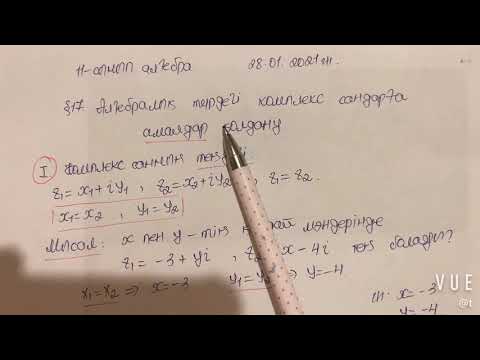 11-сынып алгебра 28.01.2021ж.
§17 Алгебралық түрдегі комплекс сандарға
амалдар қолдану
I Комплекс санның
z₁=x₁+iy₁, z₂=x₂+iy₂, z₁=z₂.
x₁=x₂, y₁=y₂
Мысал: x пен y-тің мәндерінде
z₁=-3+yi, x-4i тең болады?
x₁=x₂ ⇒ x=-3 ⇒ y=-4
x=-3
y=-4
VUE